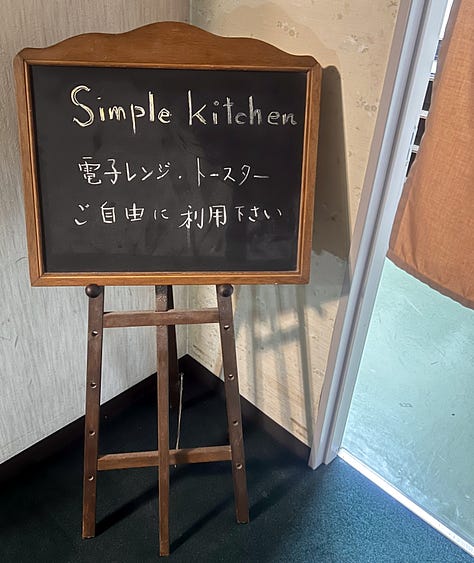 Simple kitchen
電子レンジ・トースター
ご自由に利用下さい